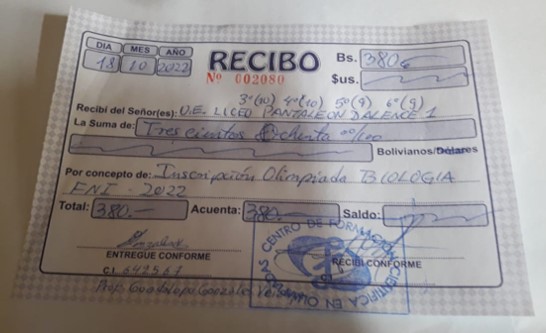 DIA MES AÑO
18 10 2022
RECIBO
Nº 002080
Bs. 380.-
$us.
3º(10) 4º(10) 5º(9) 6º(9)
Recibí del Señor(es): U.E. LICEO PANTALEON DALENCE 1
La Suma de: Trescientos Ochenta 00/100
Bolivianos/Dólares
Por concepto de: Inscripción Olimpiada BIOLOGIA
ENI - 2022
Total: 380.- Acuenta: 380.- Saldo:
ENTREGUE CONFORME
RECIBI CONFORME
C.I. 642567
Prof. Guadalupe Gonzales
CENTRO DE FORMACION CIENTIFICA EN OLIMPIADAS